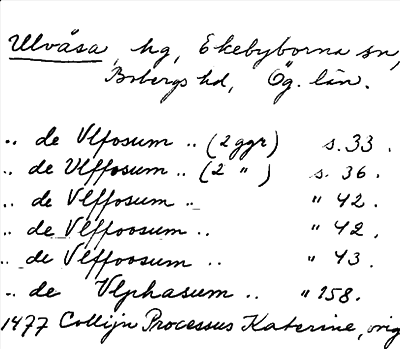 Ulvåsa, hg, Ekebyborna sn,
Bobergs hd, Ög. län.
.. de Vlfosum .. (2 ggr) s. 33.
.. de Ulffosum .. (2 " ) s. 36.
.. de Vlffosum .. " 42.
.. de Vlffoosum .. " 42.
.. de Vlffoosum .. " 43.
.. de Vlphasum .. " 158.
1477 Collijn Processus Katerine, orig